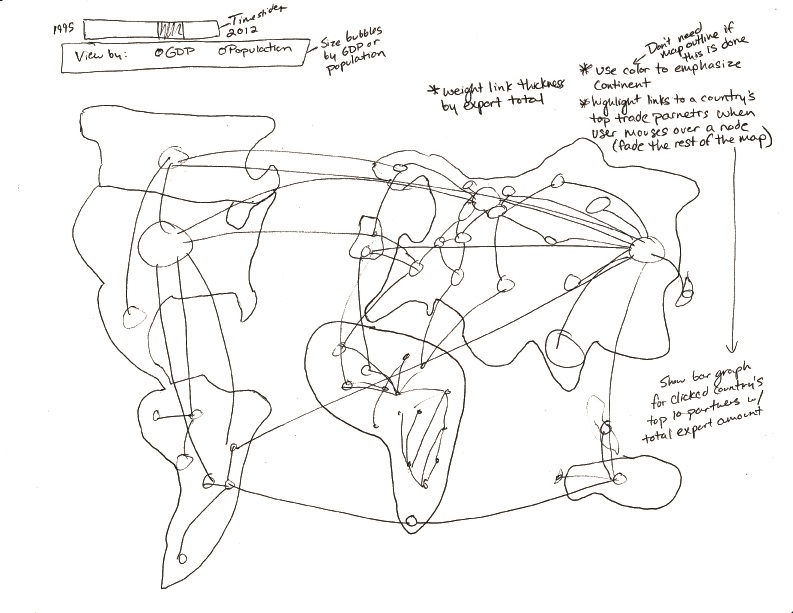 1995
Timeslider
2012
View by: GDP Population
Size bubbles
by GDP or
population
* weight link thickness
by export total
Don't need
map outline if
this is done
* use color to emphasize
continent
* highlight links to a country's
top trade parnetrs when
user mouses over a node
(fade the rest of the map)
Show bar graph
for clicked country's
top 10 partners w/
total export amount